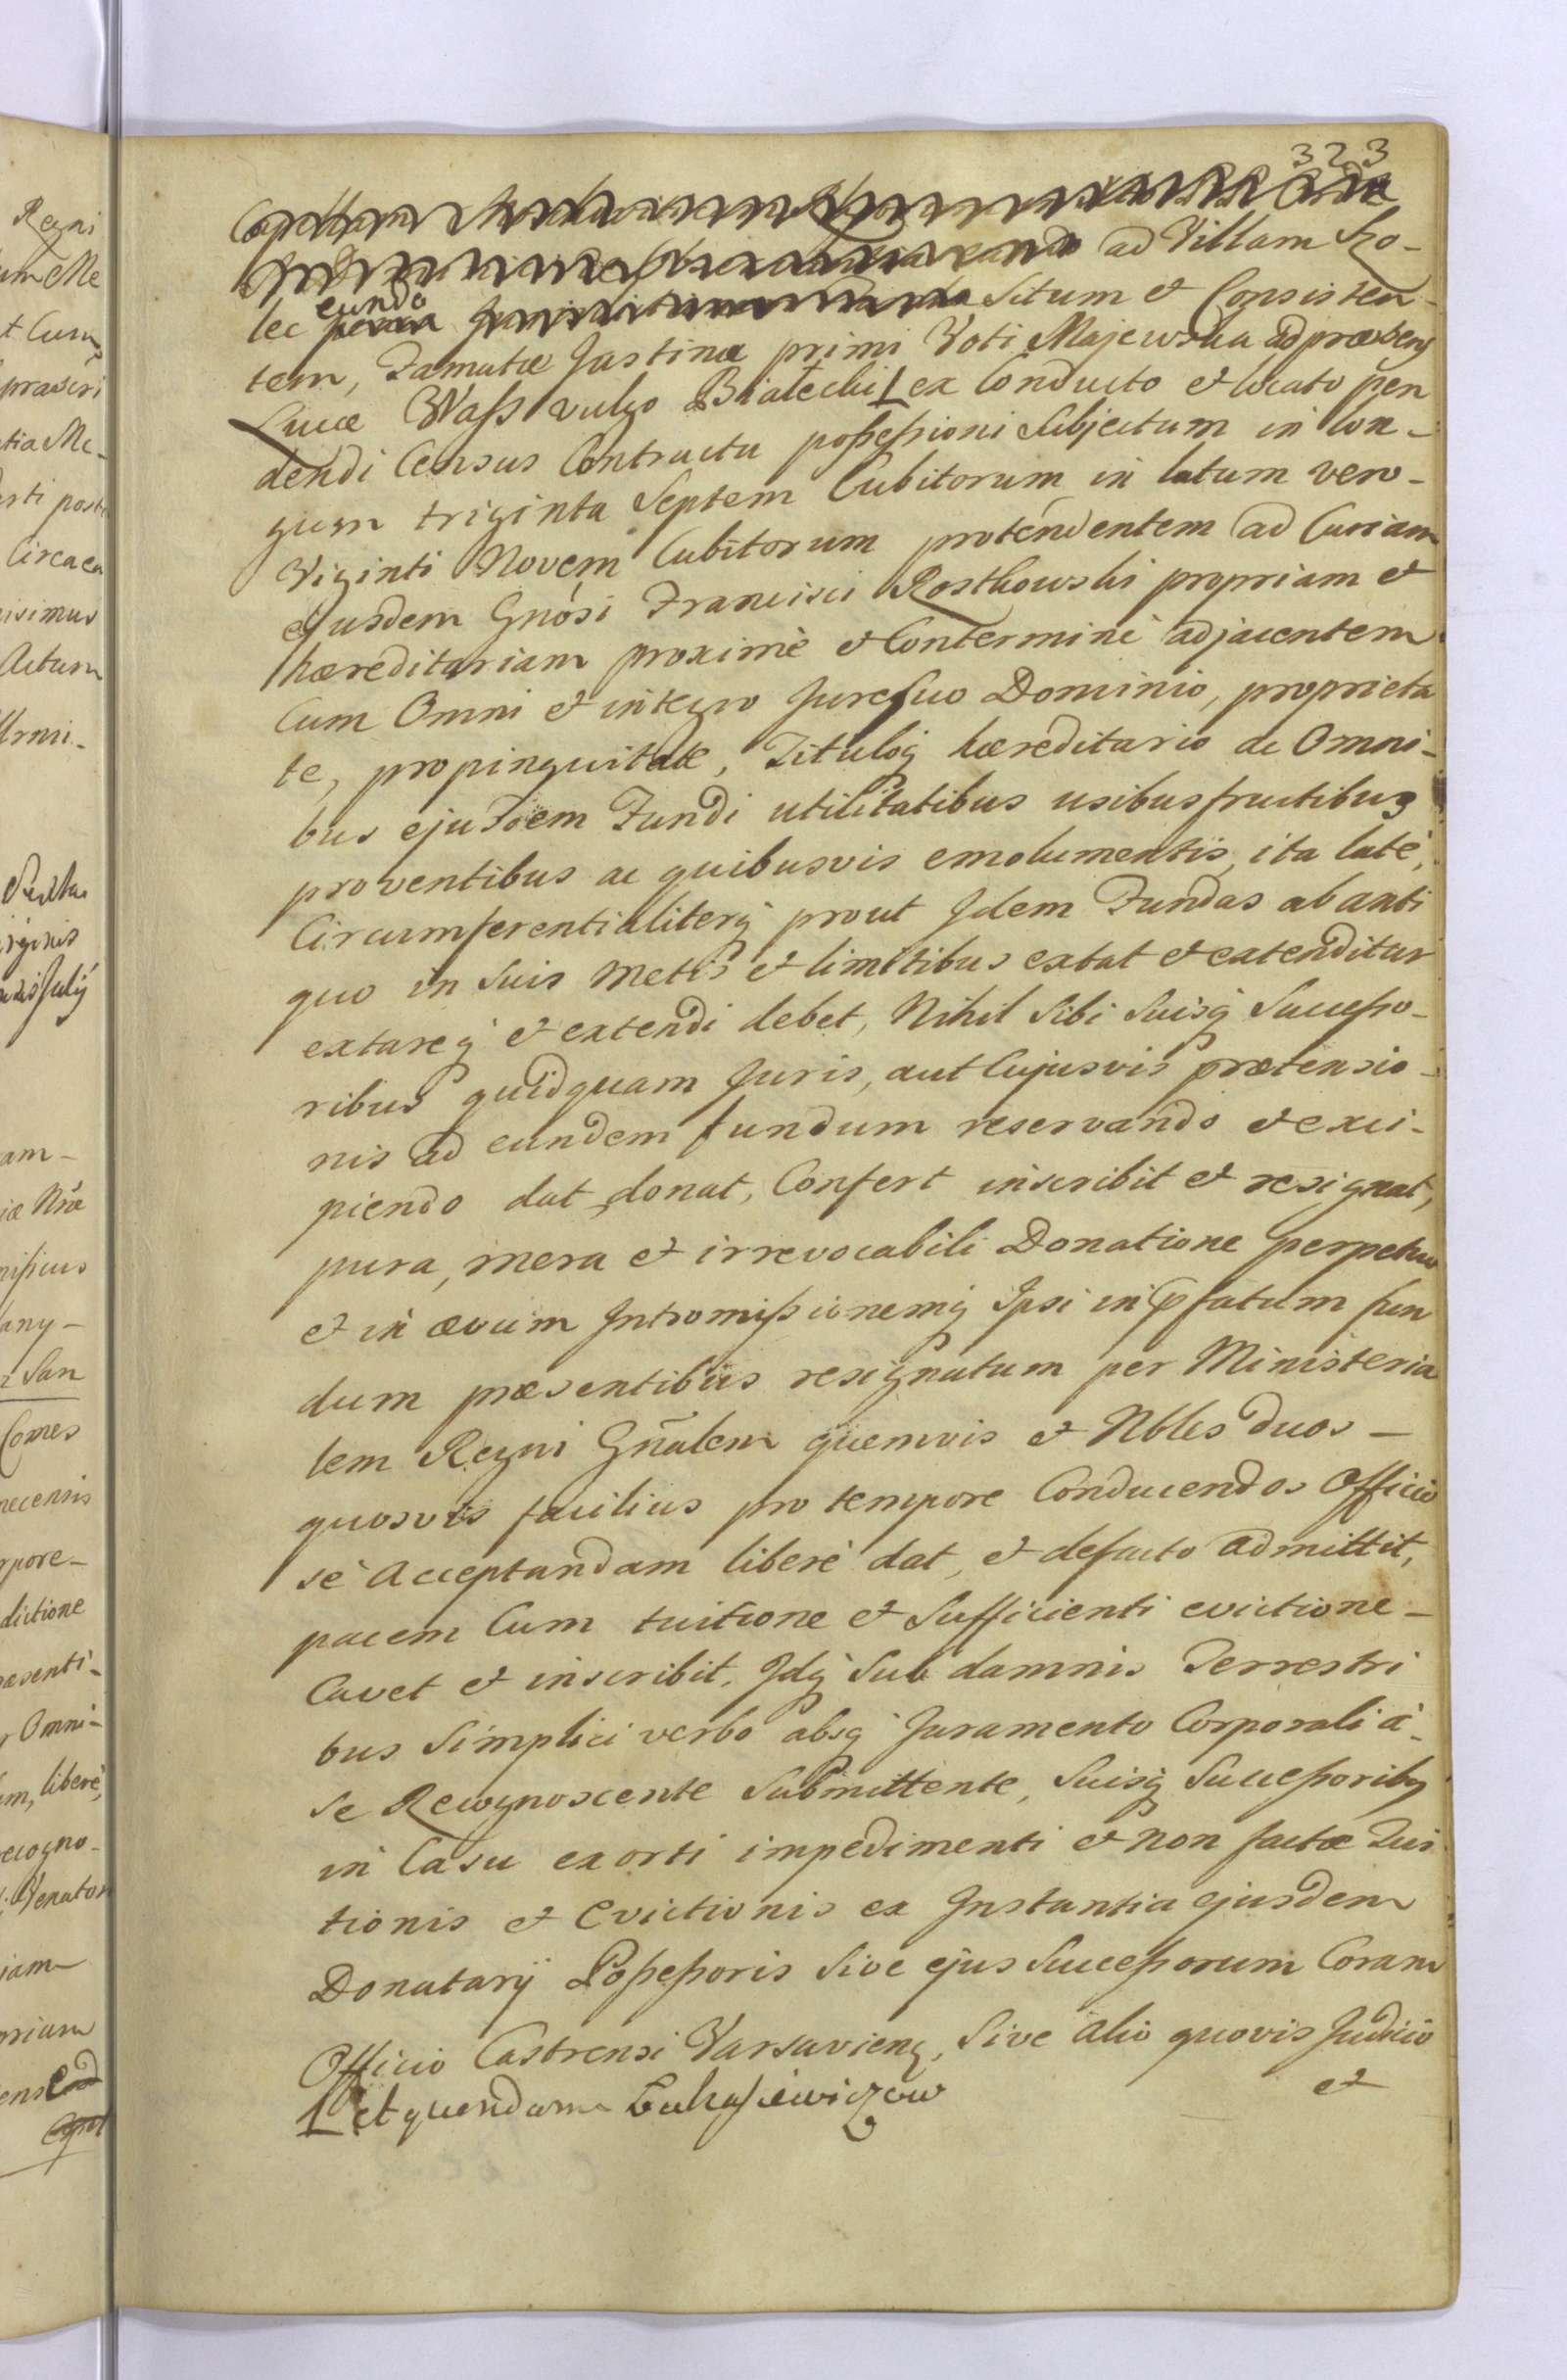 323
ad Villam Szo-
lec eundo Situm et Consisten-
tem, Famatæ Justinæ primi Voti Majewska ad præsens
Lucæ Wass vulgo Białecki ex Conducto et locato pen
dendi Census Contractu possessioni Subjectum in lon-
gum triginta Septem Cubitorum in latum vero-
Viginti Novem Cubitorum protendentem ad Curiam
ejusdem Gnosi Francisci Rostkowski propriam et
hæreditariam proximè et Conterminè adjacentem
Cum Omni et integro Jure Suo Dominio, proprieta
te, propinquitate, Tituloq hæreditario ac Omni-
bus ejusdem Fundi utilitatibus usibus fructibus
proventibus ac quibusvis emolumentis, ita latè,
Circumferentialiterq prout Idem Fundus ab anti
quo in Suis Metis et limitibus extat et extenditur
extareq et extendi debet, Nihil Sibi Suisq Successo-
ribus quidquam Juris, aut Cujusvis prætensio-
nis ad eundem fundum reservando et exci-
piendo dat, donat, Confert inscribit et resignat,
pura, mera et irrevocabili Donatione perpetuo
et in ævum Intromissionemq Ipsi in pfatum fun
dum præsentibus resignatum per Ministeria
lem Regni Gñalem quemvis et Nbles duos-
quosvis facilius pro tempore Conducendos Officio
sè Acceptandam liberè dat, et defacto admittit,
pacem Cum tuitione et Sufficienti evictione-
Cavet et inscribit, Idq Sub damnis Terrestri
bus Simplici verbo absq Juramento Corporali à-
Se Recognoscente Submittente, Suisq Successoribq
in Casu exorti impedimenti et non factæ Tui
tionis et Evictionis ex Instantia ejusdem
Donatarÿ Possessoris Sive ejus Successorum Coram
Officio Castrensi Varsavienq, Sive alio quovis Judicio
et
et quendam Łukasiewiczow